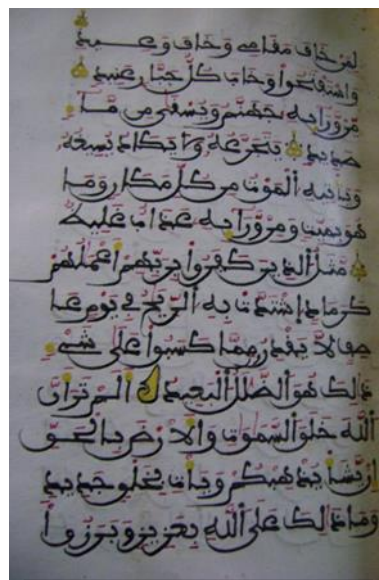 لمن خاف مقامے وخاف وعيد
واستفتحوا وخاب كل جبار عنيد
من ورايه جهنم ويسقى من ما
صديد يتجرعه ولا يكاد يسيغه
وياتيه ألموت من كل مكان وما
هو بميت ومن ورايه عذاب غليظ
مثل ألذين كفروا بربهم أعملهم
كرماد إشتدت به ألريح في يوم عا
صف لا يقدرون مما كسبوا على شےء
ذلك هو ألضلل ألبعيد ألم تر أن
ألله خلق ألسموت والارض بالحق
إن يشأ يذهبكم ويات بخلق جديد
وما ذلك على ألله بعزيز وبرزوا